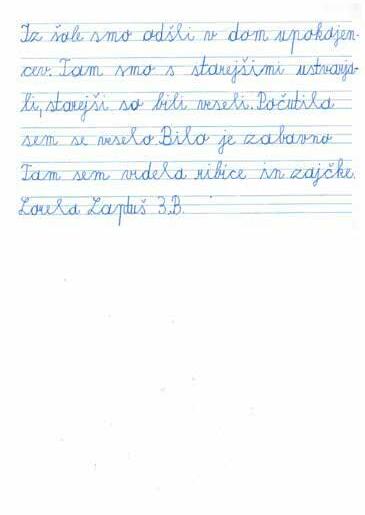 Iz šole smo odšli v dom upokojen-
cev. Tam smo s starejšimi ustvarja-
li, starejši so bili veseli. Počutila
sem se veselo. Bilo je zabavno
Tam sem videla ribice in zajčke.
Lorela Laptuš 3.B.